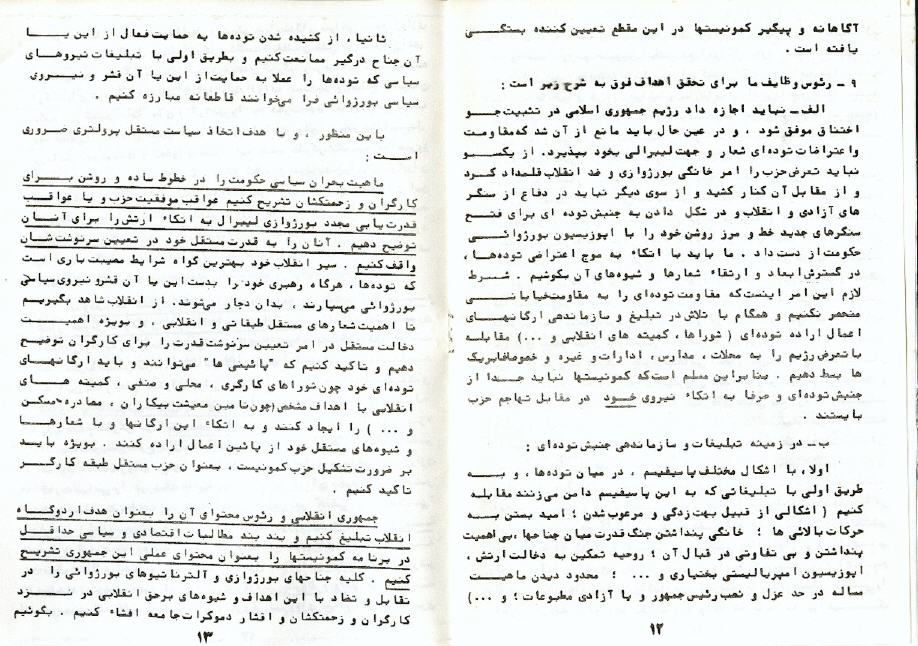 آگاهانه و پیگیر کمونیستها در این مقطع تعیین کننده بستگی
یافته است .
۹ ـ رئوس وظایف ما برای تحقق اهداف فوق به شرح زیر است :
الف ـ نباید اجازه داد رژیم جمهوری اسلامی در تثبیت جو
اختناق موفق شود ، و در عین حال باید مانع از آن شد که مقاومت
و اعتراضات توده‌ای شعار و جهت لیبرالی بخود بپذیرد. از یکسو
نباید تعرض حزب را امر خانگی بورژوازی و ضد انقلاب قلمداد کرد
و از مقابل آن کنار کشید و از سوی دیگر نباید در دفاع از سنگر
های آزادی و انقلاب و در شکل دادن به جنبش توده ای برای فتح
سنگرهای جدید خط و مرز روشن خود را با اپوزیسیون بورژوائی
حکومت از دست داد . ما باید با اتکاء به موج اعتراضی توده‌ها ،
در گسترش ابعاد و ارتقاء شعارها و شیوه‌های آن بکوشیم . شرط
لازم این امر اینست که مقاومت توده‌ای را به مقاومت خیابانی
منحصر نکنیم و همگام با تلاش در تبلیغ و سازماندهی ارگانهای
اعمال اراده توده‌ای ( شوراها ، کمیته های انقلابی و ...) مقابله
با تعرض رژیم را به محلات ، مدارس ، ادارات و غیره و خصوصا فابریک
ها بسط دهیم . بنابراین مسلم است که کمونیستها نباید جدا از
جنبش توده‌ای و صرفا به اتکاء نیروی خود در مقابل تهاجم حزب
بایستند .
ب ـ در زمینه تبلیغات و سازماندهی جنبش توده‌ای :
اولا ، با اشکال مختلف پاسیفیسم ، در میان توده‌ها ، و به
طریق اولی با تبلیغاتی که به این پاسیفیسم دامن می‌زنند مقابله
کنیم ( اشکالی از قبیل بهت زدگی و مرعوب شدن ؛ امید بستن به
حرکات بالائی ها ؛ خانگی پنداشتن جنگ قدرت میان جناحها ، بی اهمیت
پنداشتن و بی تفاوتی در قبال آن ؛ روحیه تمکین به دخالت ارتش ،
اپوزیسیون امپریالیستی بختیاری و ... ؛ محدود دیدن ماهیت
مساله در حد عزل و نصب رئیس جمهور و یا آزادی مطبوعات ؛ و ...)
۱۲
ثانیا ، از کشیده شدن توده‌ها به حمایت فعال از این یا
آن جناح درگیر ممانعت کنیم و بطریق اولی با تبلیغات نیروهای
سیاسی که توده‌ها را عملا به حمایت از این یا آن قشر و نیروی
سیاسی بورژوائی فرا می‌خوانند قاطعانه مبارزه کنیم .
باین منظور ، و با هدف اتخاذ سیاست مستقل پرولتری ضروری
است :
ماهیت بحران سیاسی حکومت را در خطوط ساده و روشن برای
کارگران و زحمتکشان تشریح کنیم عواقب موفقیت حزب و یا عواقب
قدرت یابی مجدد بورژوازی لیبرال به اتکاء ارتش را برای آنان
توضیح دهیم . آنان را به قدرت مستقل خود در تعیین سرنوشت شان
واقف کنیم . سیر انقلاب خود بهترین گواه شرایط مصیبت باری است
که توده‌ها ، هرگاه رهبری خود را بدست این یا آن قشر و نیروی سیاسی
بورژوائی می‌سپارند ، بدان دچار می‌شوند. از انقلاب شاهد بگیریم
تا اهمیت شعارهای مستقل طبقاتی و انقلابی ، و بویژه اهمیت
دخالت مستقل در امر تعیین سرنوشت قدرت را برای کارگران توضیح
دهیم و تاکید کنیم که "پائینی ها" می‌توانند و باید ارگانهای
توده‌ای خود چون شوراهای کارگری ، محلی و صنفی ، کمیته های
انقلابی با اهداف مشخص (چون تامین معیشت بیکاران ، مصادره مسکن
و ... ) را ایجاد کنند و به اتکاء این ارگانها و با شعارها
و شیوه‌های مستقل خود از پائین اعمال اراده کنند . بویژه باید
بر ضرورت تشکیل حزب کمونیست ، بعنوان حزب مستقل طبقه کارگر
تاکید کنیم .
جمهوری انقلابی و رئوس محتوای آن را بعنوان هدف اردوگاه
انقلاب تبلیغ کنیم و بند بند مطالبات اقتصادی و سیاسی حداقل
در برنامه کمونیستها را بعنوان محتوای عملی این جمهوری تشریح
کنیم . کلیه جناحهای بورژوازی و آلترناتیوهای بورژوائی را در
تقابل و تضاد با این اهداف و شیوه‌های برحق انقلابی در نزد
کارگران و زحمتکشان و اقشار دموکرات جامعه افشاء کنیم . بگوئیم
۱۳